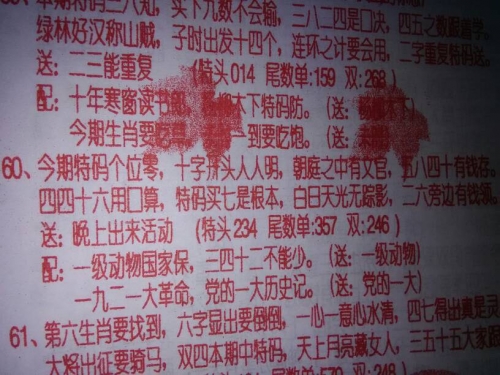 本期特码三八知，买下九数不会输，三八二四是口决，四五之数跟
绿林好汉称山贼，子时出发十四个，连环之计要会用，二字重复特码送。
送：二三能重复 （特头014 尾数单：159 双：268）
配：十年寒窗读书 木下特码防。（送：
今期生肖要吃 一到要吃饱。（送：
60、今期特码个位零，十字街头人人明，朝庭之中有文官，五八四十有钱存。
四四十六用口算，特码买七是根本，白日天光无踪影，二六旁边有钱领。
送：晚上出来活动 （特头234 尾数单：357 双：246）
配：一级动物国家保，三四十二不能少。（送：一级动物）
一九二一大革命，党的一大历史记。（送：党的一大）
61、第六生肖要找到，六字显出要倒倒，一心一意心水清，四七得出真是
大将出征要骑马，双四本期中特码，天上月亮藏女人，三五十五大家